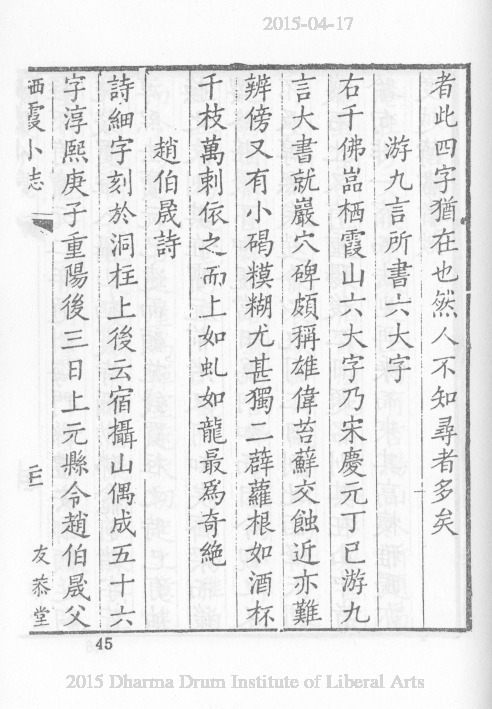 2015-04-17
者此四字猶在也然人不知尋者多矣
游九言所書六大字
右千佛嵓栖霞山六大字乃宋慶元丁巳游九
言大書就巖穴碑頗稱雄偉苔蘚交蝕近亦難
辨傍又有小碣糢糊尤甚獨二薜蘿根如酒杯
千枝萬刺依之而上如虬如龍最爲奇絶
趙伯晟詩
詩細字刻於洞柱上後云宿攝山偶成五十六
字淳熙庚子重陽後三日上元縣令趙伯晟父
栖霞小志
友恭堂
45
2015 Dharma Drum Institute of Liberal Arts